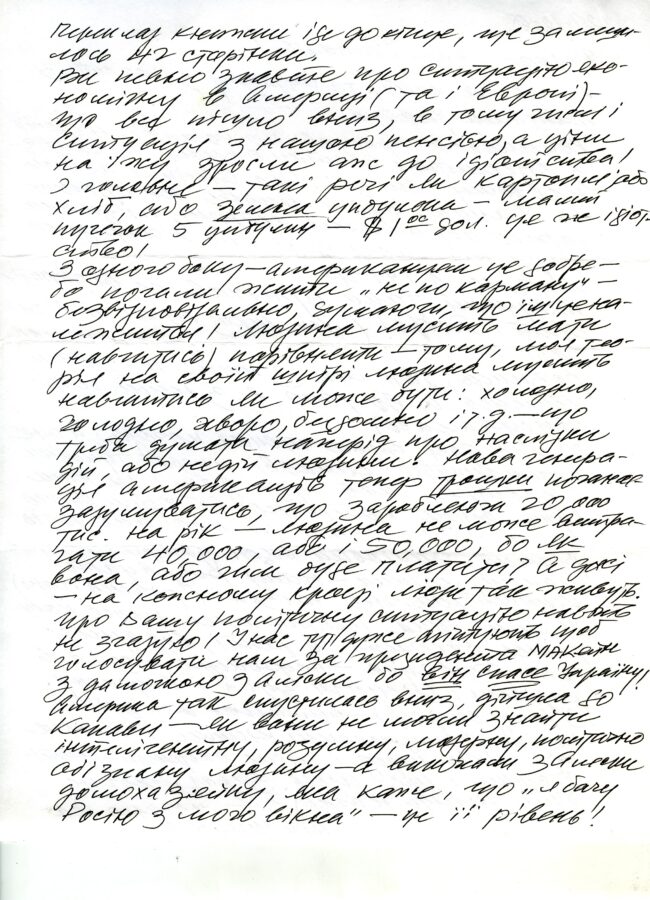 Переклад книжки іде до кінця, ще залиши-
лось 42 сторінки.
Ви певно знаєте про ситуацію еко-
номічну в Америці (та і Европі) –
що все пішло вниз, в тому числі і
ситуація з нашою пенсією, а ціни
на їжу зросли аж до ідіотства!
І головне – такі речі як картопля або
хліб, або зелена цибулька – малий
пучечок 5 цибулин – $1 00 дол. це ж ідіот-
ство!
З одного боку – американцям це добре –
бо почали жити „не по карману" –
безвідповідально, думаючи, що їм це на-
лежиться! Людина мусить мати
(навчитись) порівняти – тому, моя тео-
рія на своїй шкірі людина мусить
навчитись як може бути: холодно,
голодно, хворо, бездомно і т.д. – що
треба думати наперід про наслідки
дій, або недій людини. Нова генера-
ція американців тепер трошки починає
задумуватись, що заробляючи 20,000
тис. на рік – людина не може витра-
чати 40,000 або і 50,000, бо як
вона, або чим буде платити? А далі
– на кожному кроці люди так живуть.
Про Вашу політичну ситуацію навіть
не згадую! У нас тут дуже агітують щоб
голосувати нам за президента МАКейн
з домохою з Аляски бо він спасе Україну!
Америка так спустилась вниз, дійшла до
канави – як вони не могли знайти
інтелігентну, розумну, модерну, політично
обізнану людину – а викопали з Аляски
домохазяйку, яка каже, що „я бачу
Росію з мого вікна" – це її рівень!